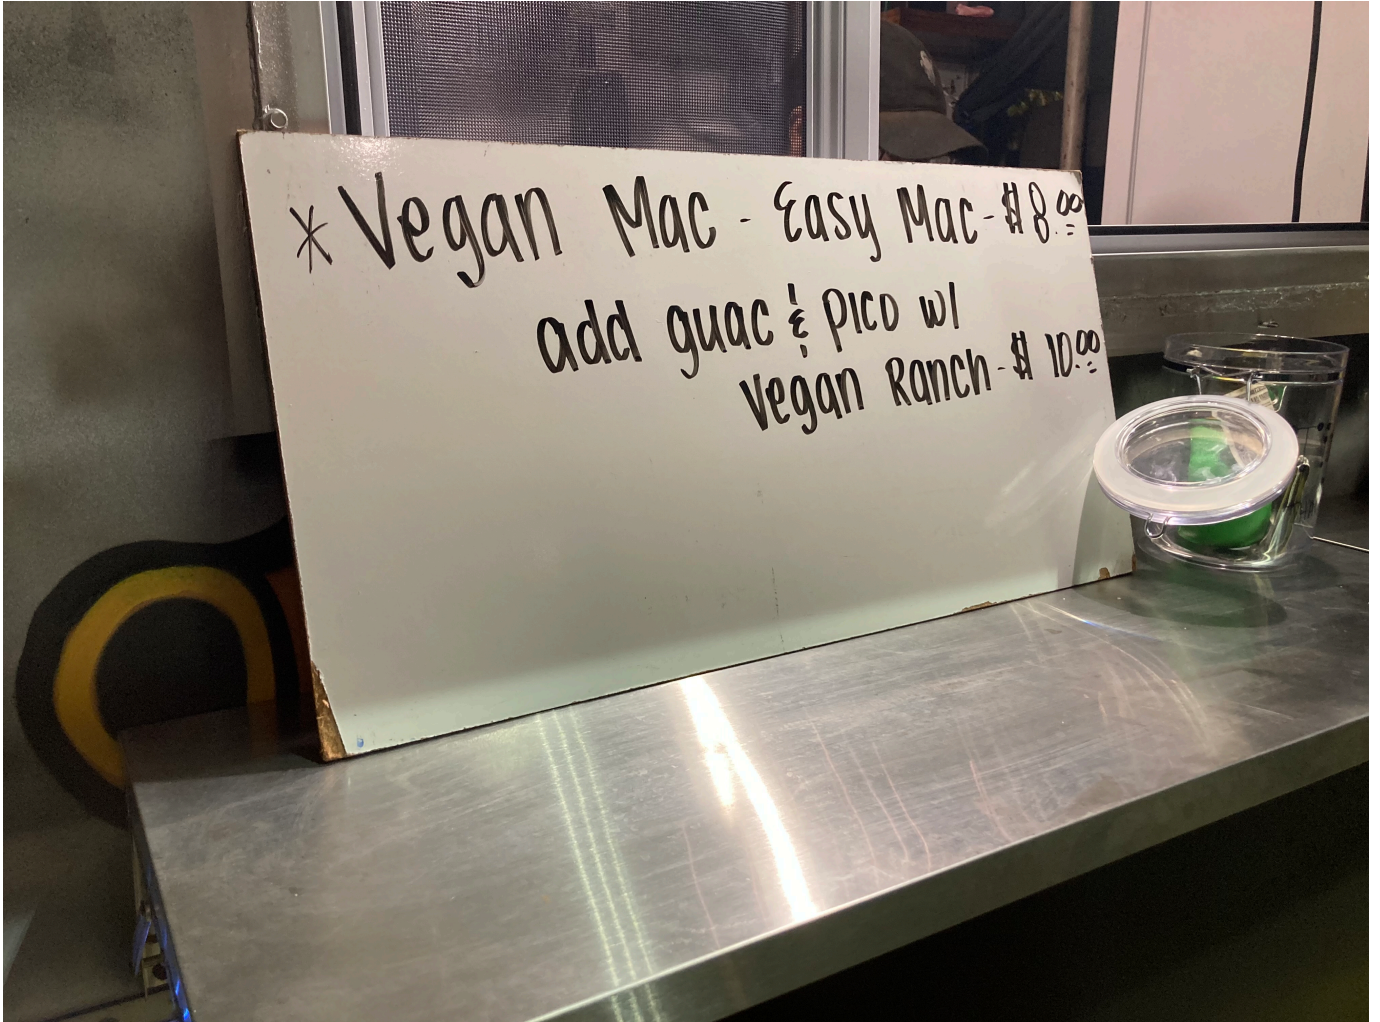 * Vegan Mac - Easy Mac - $8.00
add guac & pico w/
Vegan Ranch - $10.00